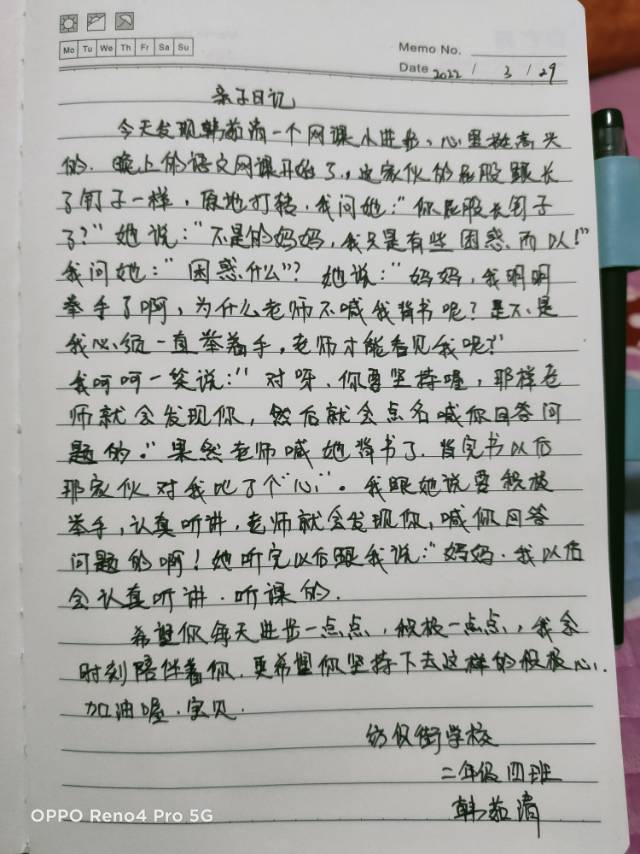 Mo Tu We Th Fr Sa Su
Memo No.
Date 2022 / 3 / 29
亲子日记
今天发现韩茹清一个网课小进步、心里挺高兴
的. 晚上的语文网课开始了., 这家伙的屁股跟长
了钉子一样, 原地打转. 我问她:"你屁股长钉子
了?" 她说:"不是的妈妈, 我只是有些困惑、而以!"
我问她:"困惑什么"? 她说:"妈妈, 我明明
举手了啊, 为什么老师不喊我背书呢? 是不是
我必须一直举着手, 老师才能看见我呢?"
我呵呵一笑说:"对呀. 你要坚持喔, 那样老
师就会发现你, 然后就会点名喊你回答问
题的." 果然老师喊她背书了. 背完书以后
那家伙对我比了个"心". 我跟她说要积极
举手, 认真听讲. 老师就会发现你, 喊你回答
问题的啊! 她听完以后跟我说:"妈妈. 我以后
会认真听讲. 听课的.
希望你每天进步一点点, 积极一点点, 我会
时刻陪伴着你. 更希望你坚持下去这样的积极心.
加油喔. 宝贝.
纺织街学校
二年级四班
韩茹清
OPPO Reno4 Pro 5G